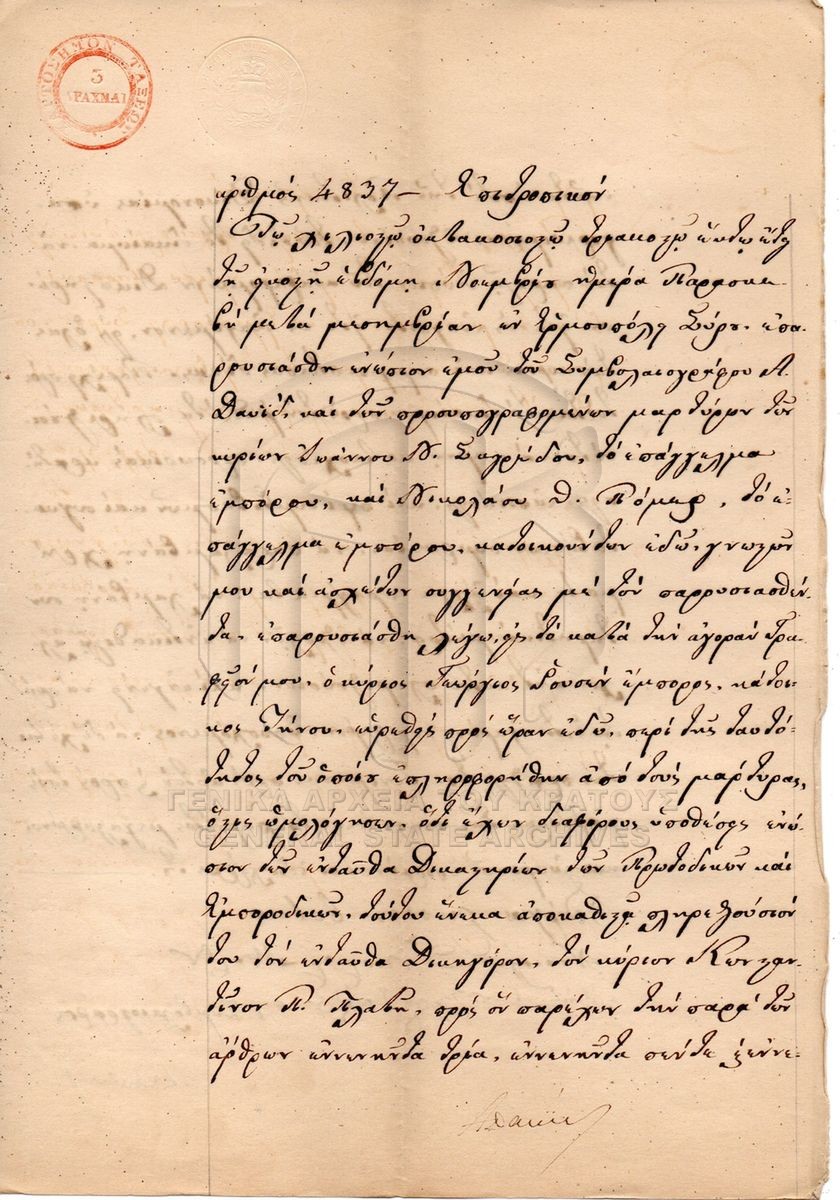 ΧΑΡΤΟΣΗΜΟΝ ΤΑΞΕΩΣ
3
ΔΡΑΧΜΑΙ
ἀριθμός 4837 — Ἐπιτροπικόν
Τῷ χιλιοστῷ ὀκτακοσιοστῷ τριακοστῷ ἕκτῳ ἔτει
τῇ εἰκοστῇ ἑβδόμῃ Νοεμβρίου ἡμέρα Παρασκε-
βή μετά μεσημβρίαν ἐν Ἑρμουπόλει Σύρου, ἐπα-
ρρουσιάσθη ἐνώπιον ἐμοῦ τοῦ Συμβολαιογράφου Α.
Δαυίδ, καί τῶν προσυπογραφομένων μαρτύρων τῶν
κυρίων Ἰωάννου Ν. τό ἐπάγγελμα
ἐμπόρου, καί Νικολάου τό ἐ-
πάγγελμα ἐμπόρου, κατοικούντων ἐδῶ, γνωστῶν
μου καί ἀσχέτων συγγενείας μέ τόν παρρουσιασθέν-
τα, ἐπαρουσιάσθη λέγω, εἰς τό κατά τήν ἀγοράν Γρα-
φεῖόν μου, ὁ κύριος Γεώργιος ἔμπορος, κάτοι-
κος Τήνου, εὑρεθείς πρός ὥραν ἐδῶ, περί τῆς ταυτό-
τητος τοῦ ὁποίου ἐπληροφορήθην ἀπό τούς μάρτυρας,
ὅστις ὡμολόγησεν, ὅτι ἔχων διαφόρους ὑποθέσεις ἐνώ-
πιον τῶν ἐνταῦθα Δικαστηρίων τῶν Πρωτοδικῶν καί
Ἐμποροδικῶν, τούτου ἕνεκα ἀποκαθιστᾷ πληρεξούσιόν
του τόν ἐνταῦθα Δικηγόρον, τόν κύριον Κωνσταν-
τῖνον Π. πρός ὅν παρέχων τήν παρά τῶν
ἄρθρων ἐννενῆντα τρία, ἐννενῆντα πέντε ἐξεννε-
ΓΕΝΙΚΑ ΑΡΧΕΙΑ ΤΟΥ ΚΡΑΤΟΥΣ
GENERAL STATE ARCHIVES